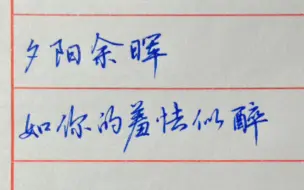 夕阳余晖
如你的羞怯似醉